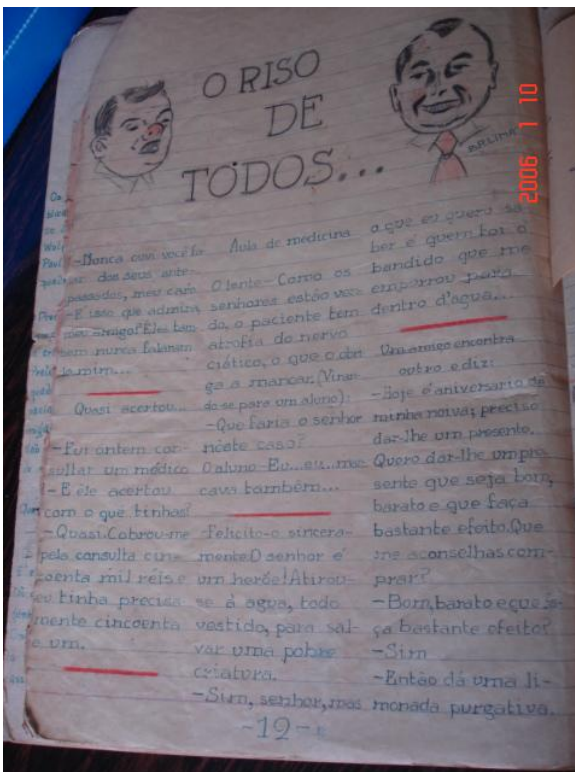 O RISO
DE
TODOS...
ARLINDO
2006 1 10
-Nunca ouvi você fa-
lar dos seus ante-
passados, meu caro
-E isso que admira,
meu amigo? Eles tam-
bem nunca falaram
de mim...
Quasi acertou...
-Fui ontem con-
sultar um médico
-E êle acertou
com o que tinhas?
-Quasi. Cobrou-me
pela consulta cin-
coenta mil réis e
eu tinha precisa-
mente cincoenta
e um.
Aula de medicina
O lente-Como os
senhores estão ven-
do, o paciente tem
atrofia do nervo
ciático, o que o obri-
ga a mancar. (Viran-
do se para um aluno):
-Que faria o senhor
nêste caso?
O aluno-Eu...eu...man-
cava também...
-Felicito-o sincera-
mente. O senhor é
um herói! Atirou-
se á agua, todo
vestido, para sal-
var uma pobre
criatura.
-Sim, senhor, mas
o que eu quero sa-
ber é quem foi o
bandido que me
empurrou para
dentro d'agua...
Um amigo encontra
outro e diz:
-Hoje é aniversario de
minha noiva; preciso
dar-lhe um presente.
Quero dar-lhe um pre-
sente que seja bom,
barato e que faça
bastante efeito. Que
me aconselhas com-
prar?
-Bom, barato e que fa-
ça bastante efeito?
-Sim
-Então dá uma li-
monada purgativa.
-19-